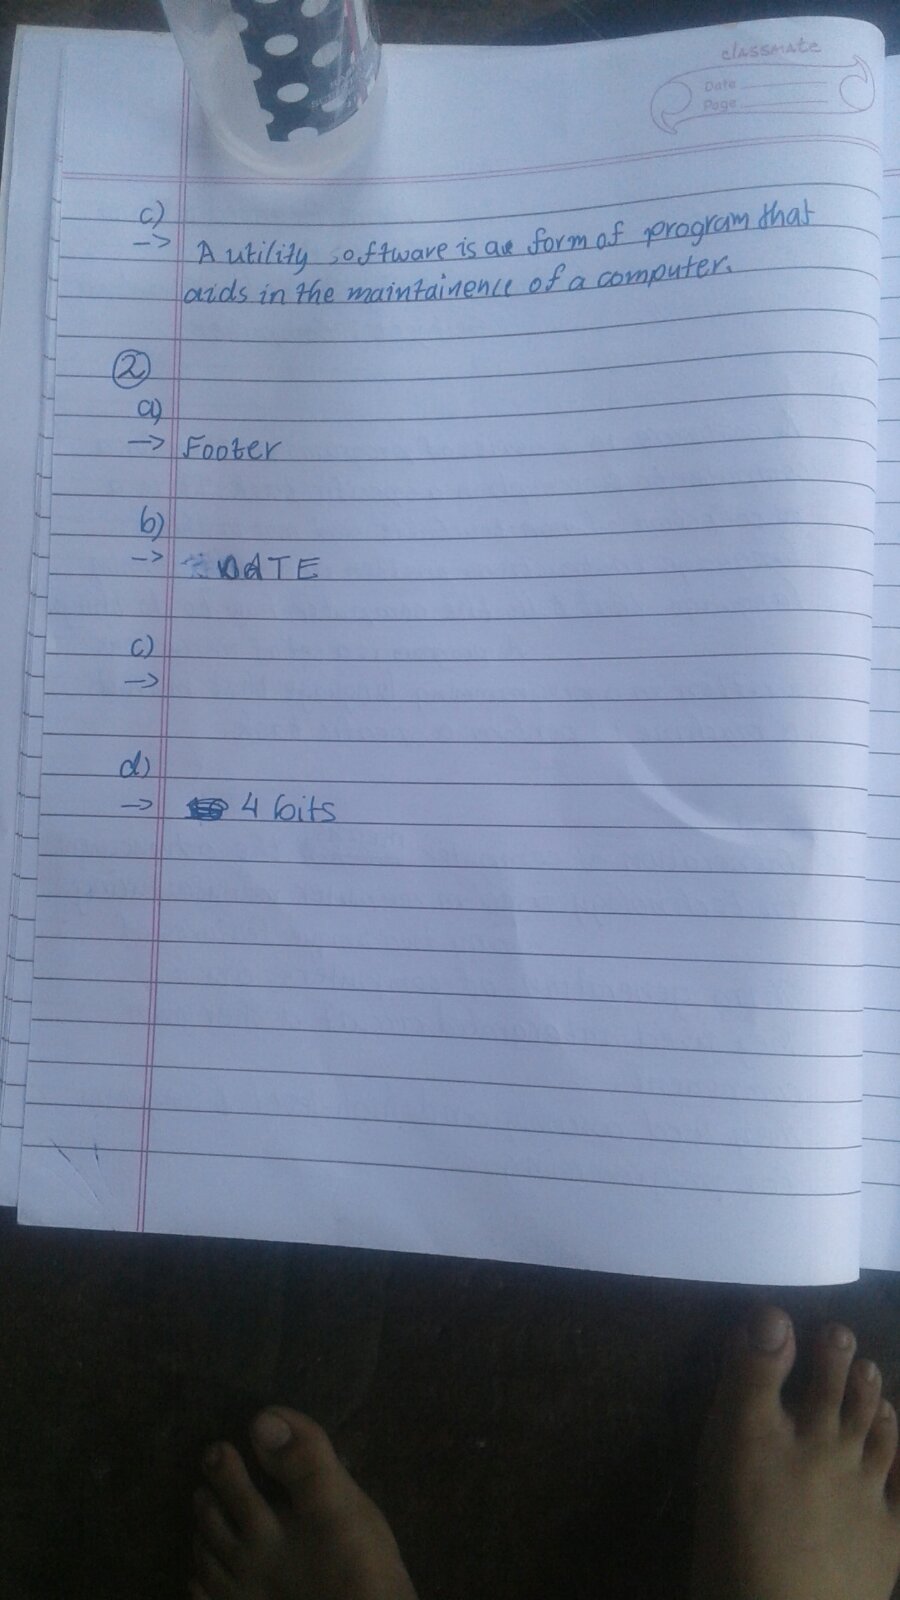 classmate
Date
Page
c)
-> A utility software is a form of program that
aids in the maintainence of a computer.
2
a)
-> Footer
b)
-> DATE
c)
->
d)
-> 4 bits